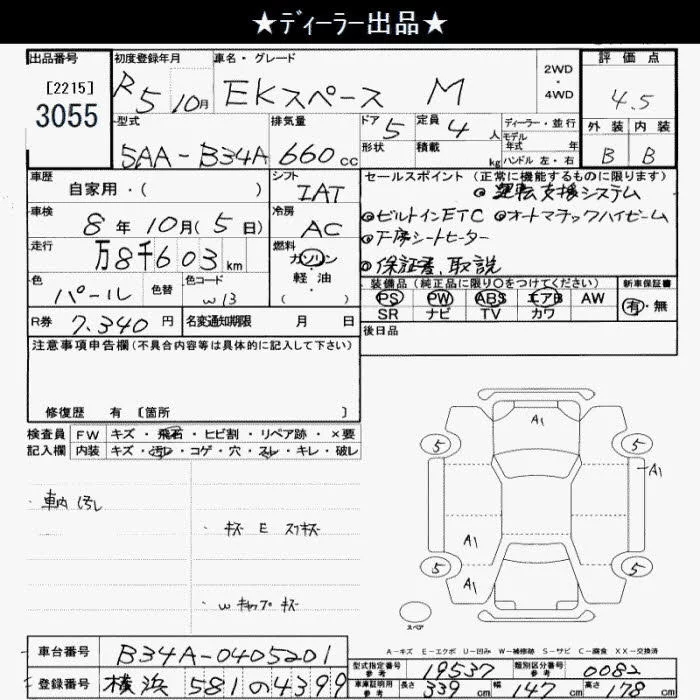 ★ディーラー出品★
出品番号 初度登録年月 車名・グレード 2WD・4WD 評価点
[2215] 3055 R5 10月 EKスペース M 4.5
型式 排気量 ドア 5 定員 4人 ディーラー・並行 外装 内装
5AA-B34A 660cc 形状 積載 kg モデル年式 年 ハンドル 左・右 B B
車歴 自家用・( ) シフト IAT セールスポイント (正常に機能するものに限ります)
◎運転支援システム
車検 8年10月(5日) 冷房 AC ◎ビルトインETC ◎オートマチックハイビーム
走行 万8千603km 燃料 ガソリン・軽油・( ) ◎下席シートヒーター
◎保証書、取説
色 パール 色替 色コード W13 装備品(純正品に限り○をつけてください) 新車保証書
PS PW ABS エアB AW 有・無
SR ナビ TV カワ
R券 7.340円 名変通知期限 月 日 後日品
注意事項申告欄(不具合内容等は具体的に記入して下さい)
修復歴 有 〔箇所 〕
検査員 FW キズ・飛石・ヒビ割・リペア跡・×要
記入欄 内装 キズ・汚レ・コゲ・穴・スレ・キレ・破レ
A1
5 5
A1
・車内汚し
・キズ E スリキズ
A1
5 5
A1
・Wキャップキズ
スペア
A-キズ E-エクボ U-凹み W-補修跡 S-サビ C-腐食 XX-交換済
車台番号 B34A-0405201
型式指定番号 参考 19537 類別区分番号 参考 0082
登録番号 横浜 581の4399
車庫証明用 参考 長さ 339cm 幅 147cm 高さ 178cm